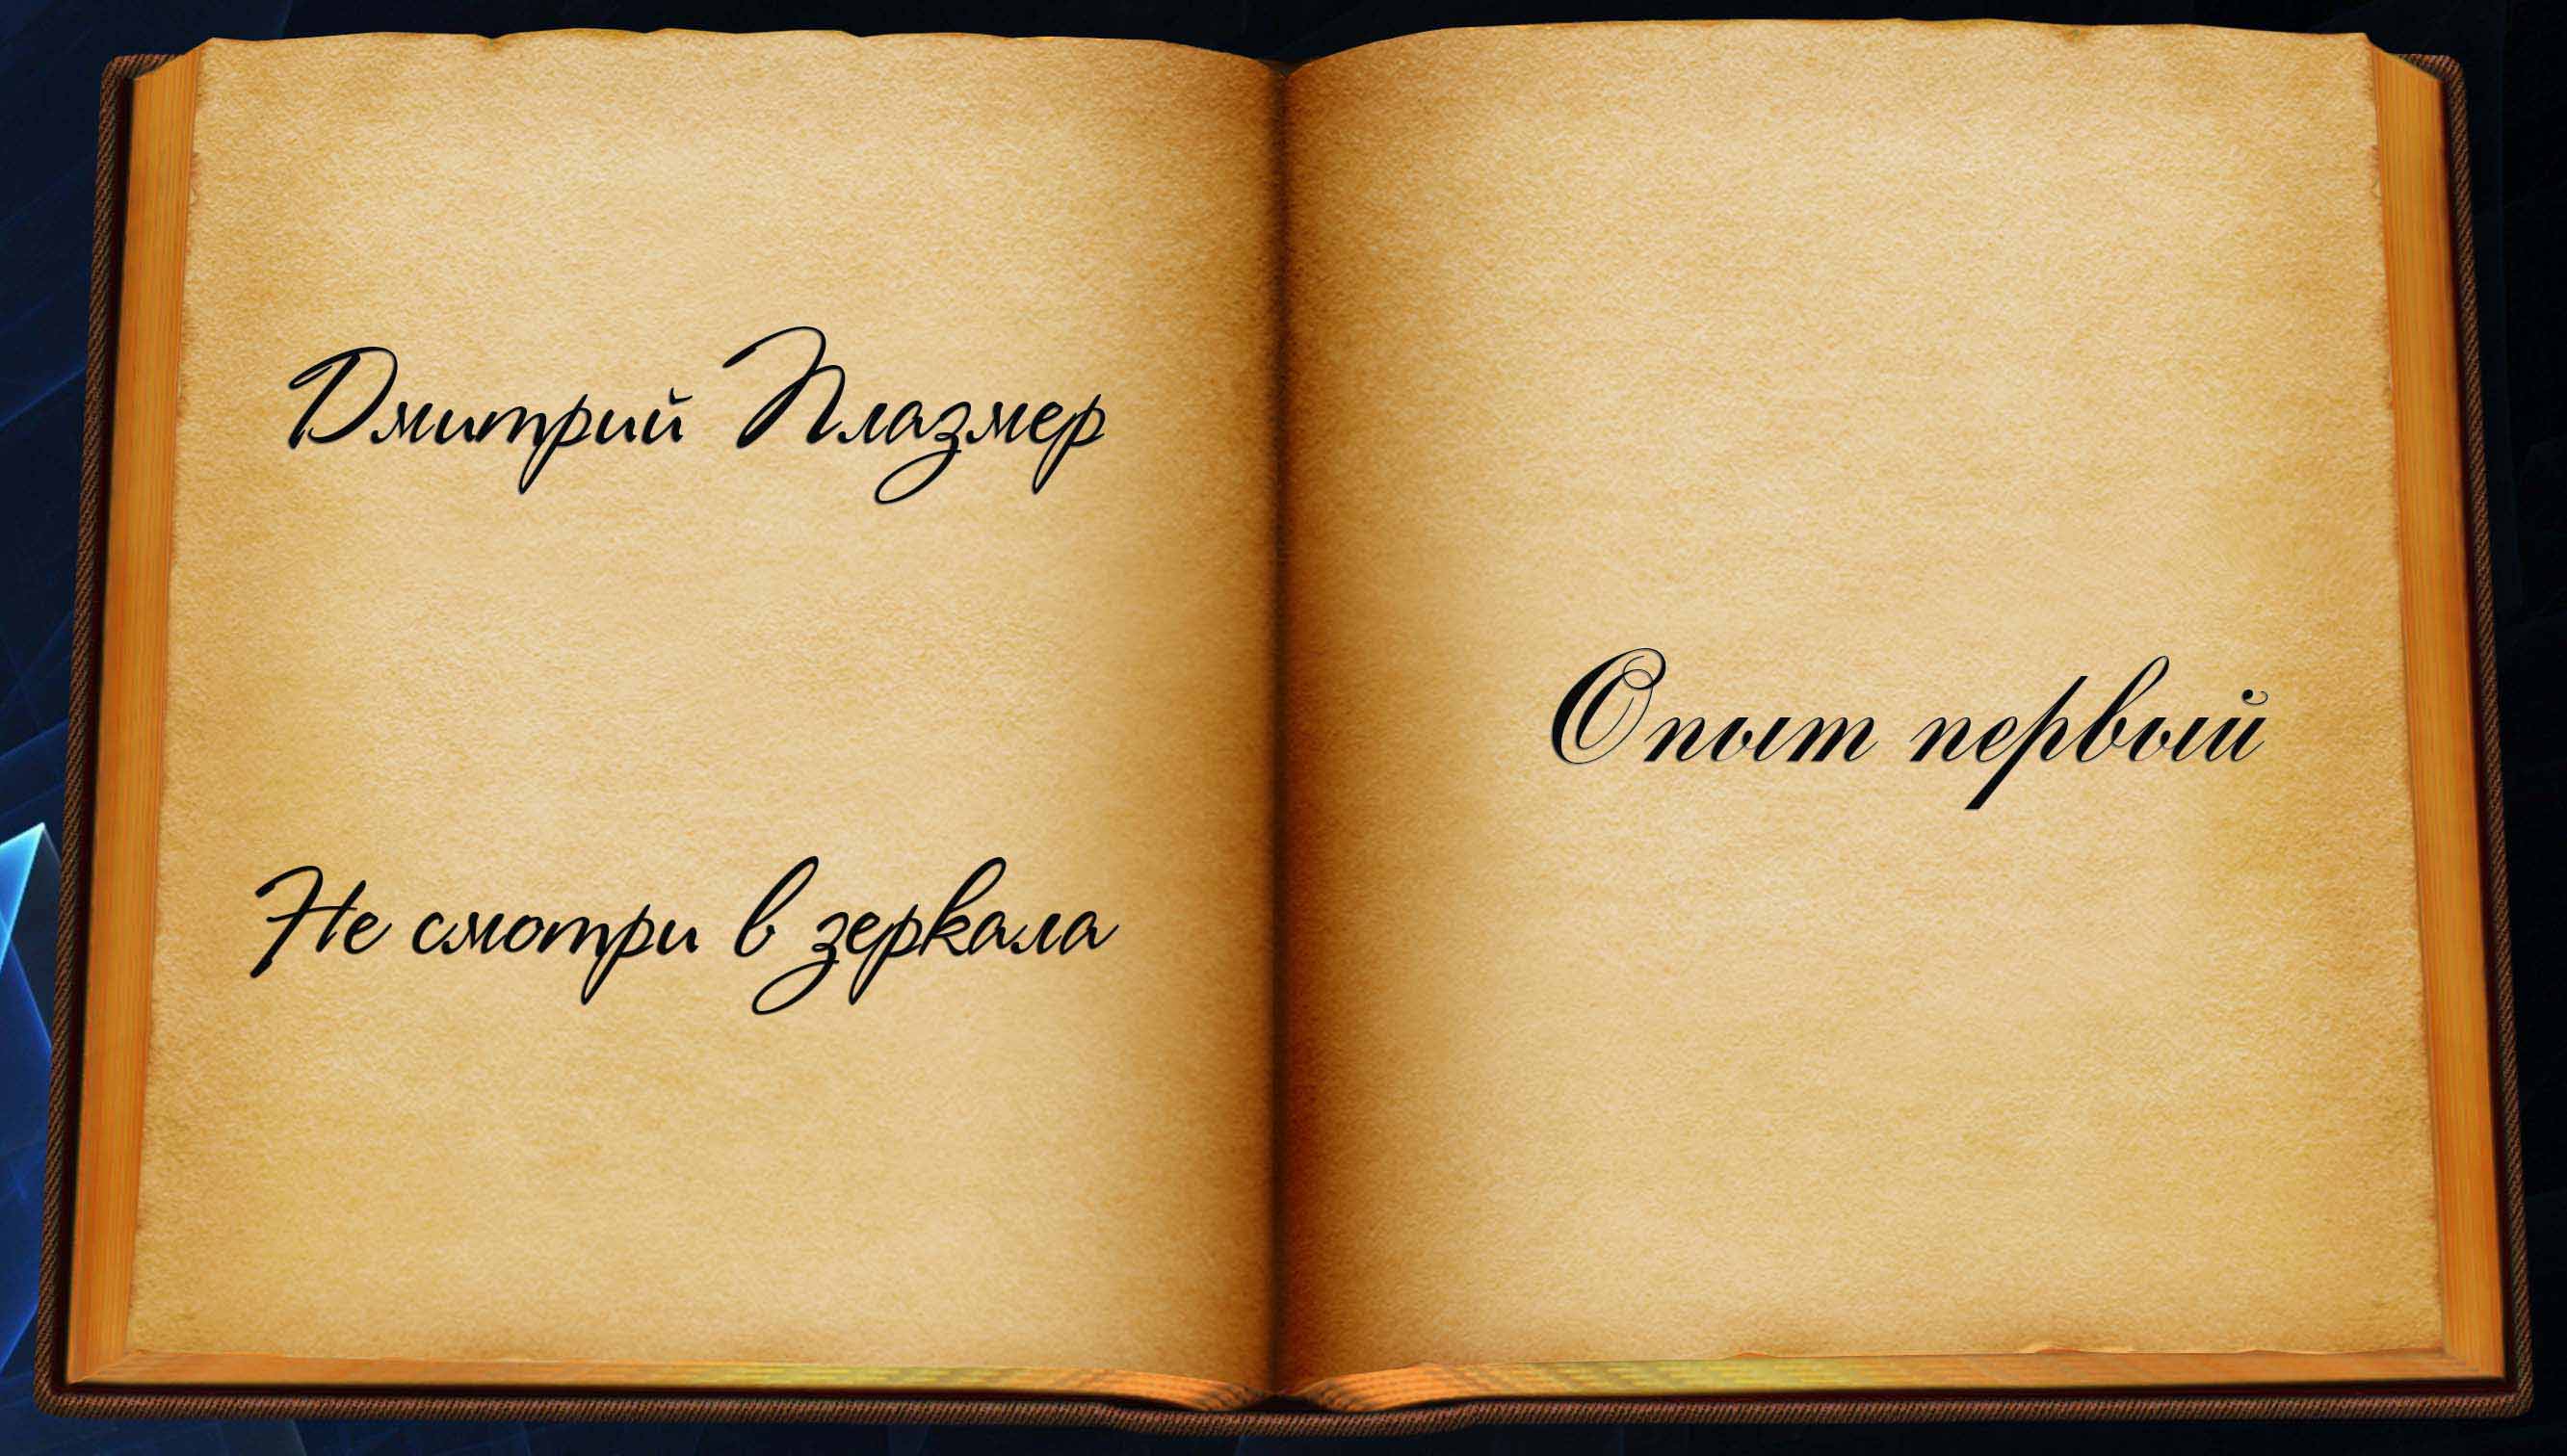 Дмитрий Плазмер
Не смотри в зеркала
Опыт первый